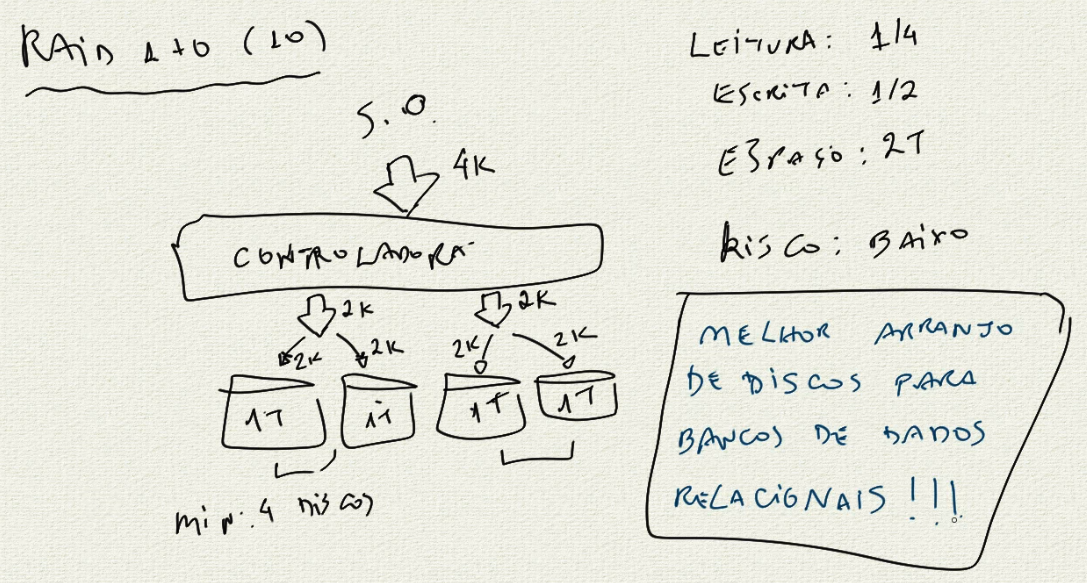 RAID 1+0 (10)
S.O.
4K
CONTROLADORA
2K
2K
2K
2K
2K
2K
1T
1T
1T
1T
min: 4 DISCOS
LEITURA: 1/4
ESCRITA: 1/2
ESPAÇO: 2T
RISCO: BAIXO
MELHOR ARRANJO
DE DISCOS PARA
BANCOS DE DADOS
RELACIONAIS !!!